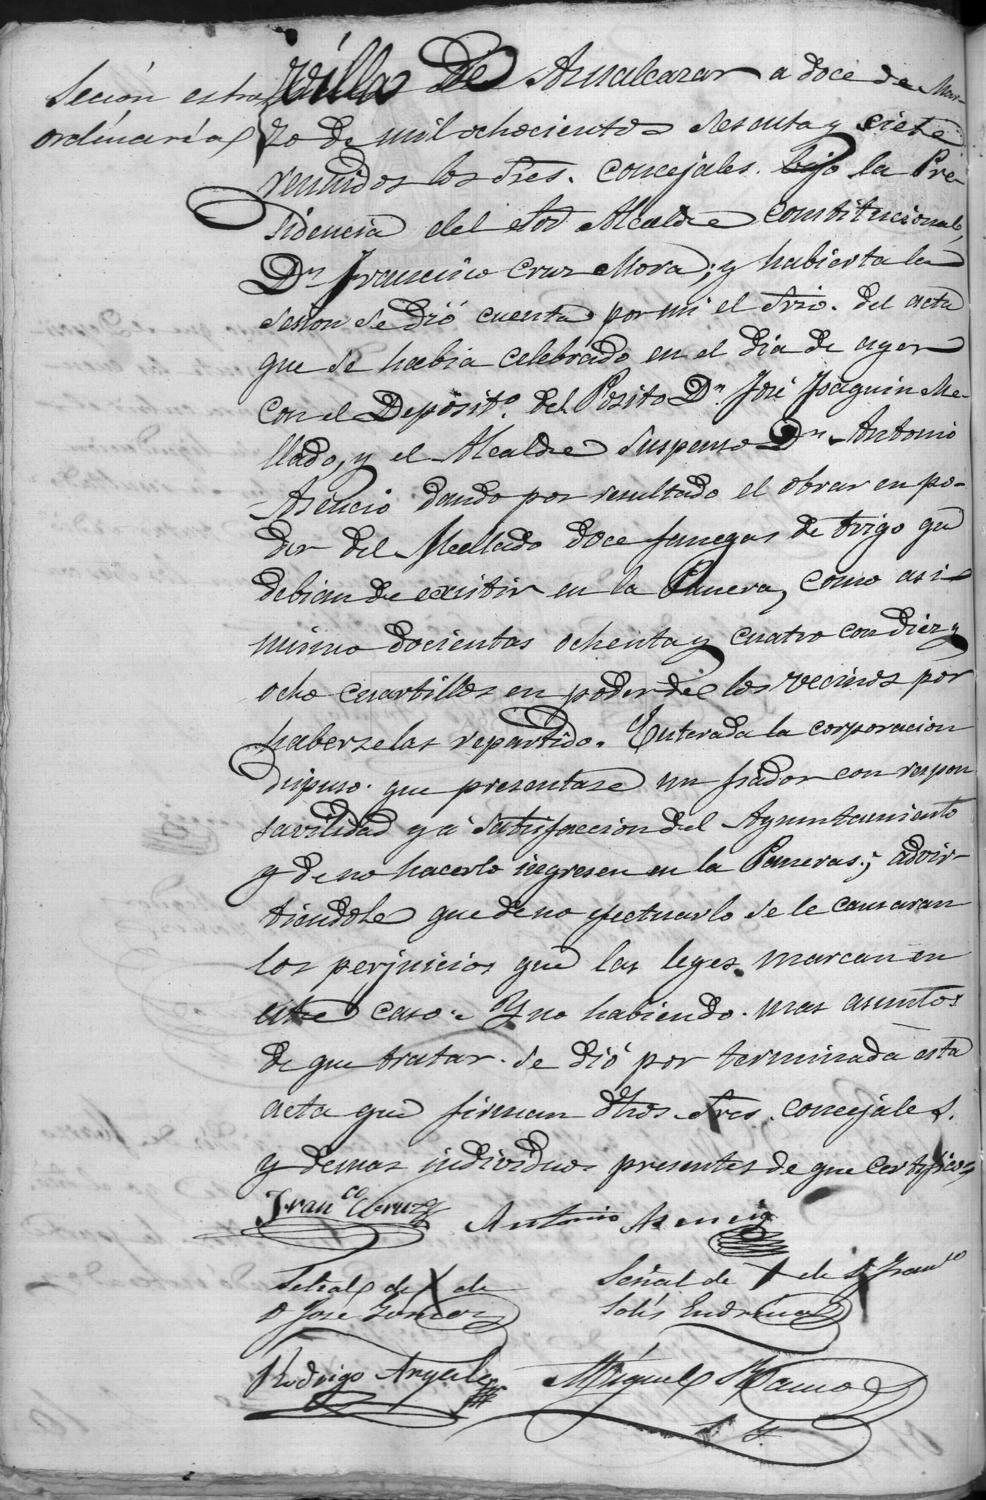 Seción estra
ordinaria
Villa de Aznalcazar a doce de Mar-
zo de mil ochocientos sesenta y siete
reunidos los Sres. concejales. bajo la Pre-
sidencia del Sor Alcalde constitucional,
Dn Francisco Cruz Mora; y habierta la
sesion se dió cuenta por mi el Srio. del acta
que se habia celebrado en el dia de ayer
con el Deposito. del Posito Dn José Joaquin Me-
llado, y el Alcalde suspenso Dn Antonio
Asencio dando por resultado el obrar en po-
der del Mellado doce fanegas de trigo qe
debian de existir en la Panera, como asi
mismo docientas ochenta y cuatro con diez y
ocho cuartillos en poder de los vecinos por
haberselas repartido. Enterada la corporacion
dispuso. que presentase un fiador con respon
savilidad y á satisfaccion del Ayuntamiento
y de no hacerlo ingresen en la Paneras; advir-
tiendole que de no efectuarlo se le causaran
los perjuicios que las leyes marcan en
este caso. Y no habiendo. mas asuntos
de que tratar. se dió por terminada esta
acta que firman dhos Sres. concejales.
y demas individuos presentes de que certifico,
Franco Cruz
Antonio Asencio
Señal de X de
D Jose
Señal de + de D Franco
Solís
Rodrigo
Miguel Ramo
S. I.